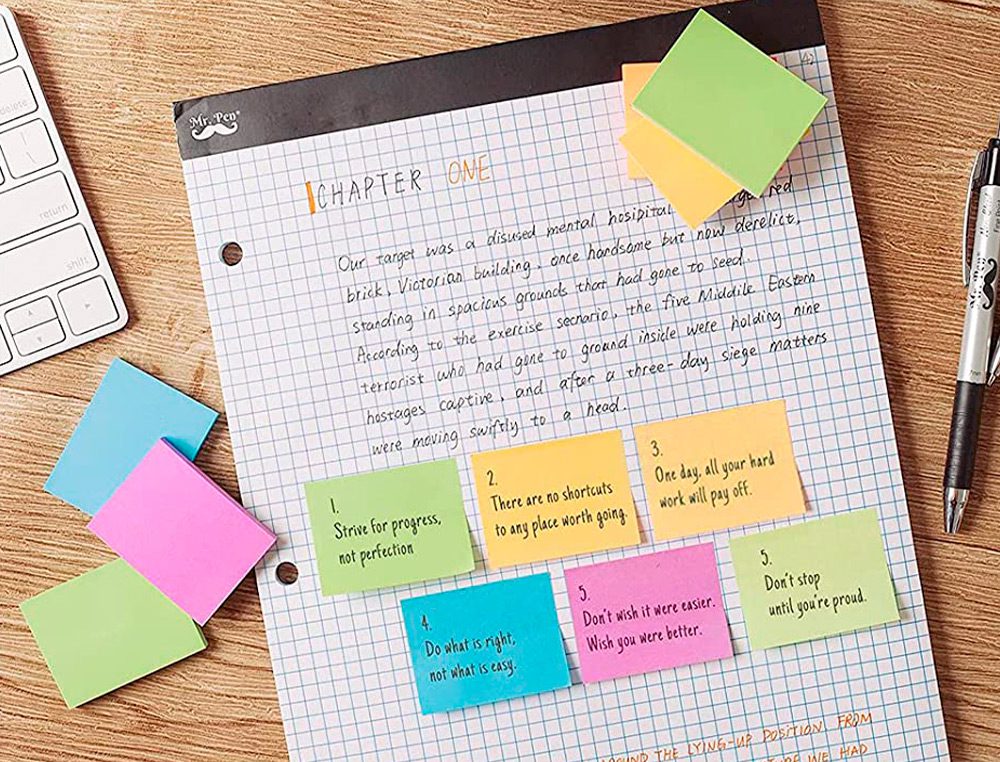 Mr. Pen®
CHAPTER ONE
Our target was a disused mental hosipital red
brick, Victorian building, once handsome but now derelict,
standing in spacious grounds that had gone to seed.
According to the exercise secnario, the five Middile Eastern
terrorist who had gone to ground inside were holding nine
hostages captive, and after a three-day siege matters
were moving swiftly to a head.
1.
Strive for progress,
not perfection
2.
There are no shortcuts
to any place worth going.
3.
One day, all your hard
work will pay off.
4.
Do what is right,
not what is easy.
5.
Don't wish it were easier.
Wish you were better.
5.
Don't stop
until you're proud.
THE LYING-UP POSITION FROM
WE HAD
delete
return
shift
Mr. Pen